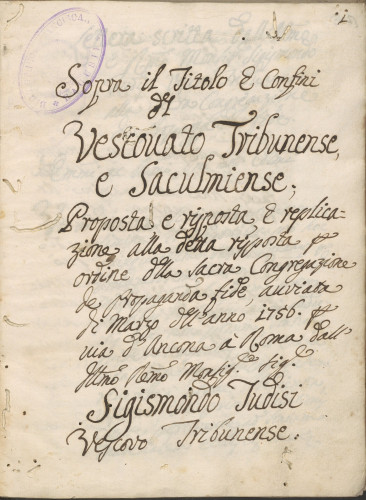 Sopra il Titolo e Confini
del
Vescovato Tribunense,
e Saculmiense;
Proposta e risposta e replica-
zione alla detta risposta p
ordine della Sacra Congregazione
de Propaganda fide avviata
di Marzo dell'anno 1756. p
via d'Ancona a Roma dall
Illmo Revmo Monsig.re Sig.r
Sigismondo Tudisi
Vescovo Tribunense.